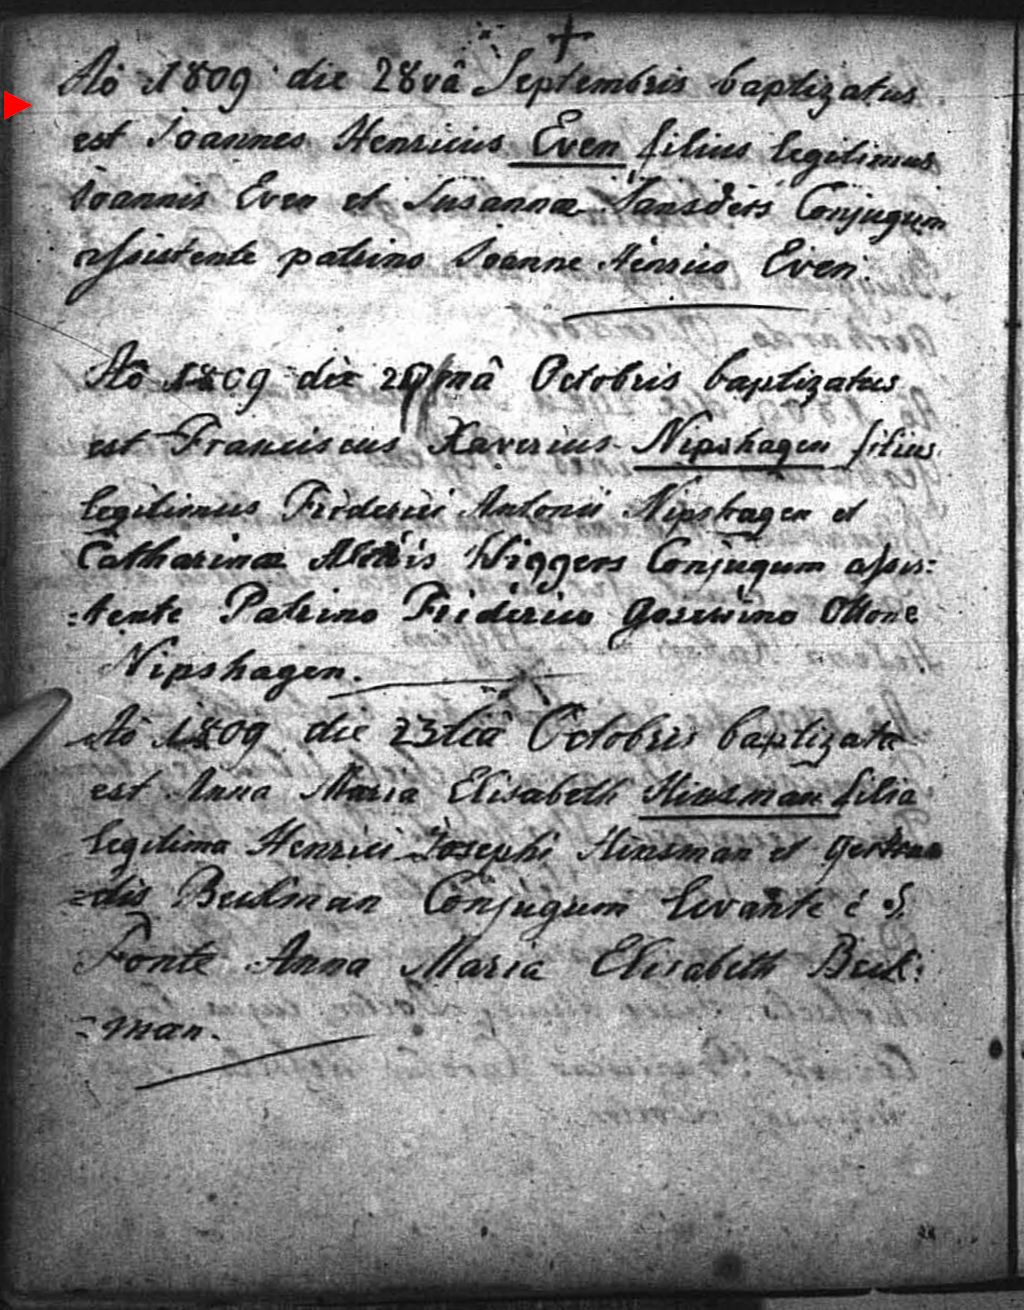 Aô 1809 die 28vâ Septembris baptizatus
est Joannes Henricus Even filius legitimus
Joannis Even et Susannæ Conjugum
assistente patrino Joanne Henrico Even.
Aô 1809 die Octobris baptizatus
est Franciscus Xaverius Nipshagen filius
legitimus Friderici Antonii Nipshagen et
Catharinæ Wiggers Conjugum assis:
:tente Patrino Friderico Goswino Ottone
Nipshagen.
Aô 1809 die 23tiâ Octobris baptizata
est Anna Maria Elisabeth Hinsman filia
legitima Henrici Josephi Hinsman et Gertru
=dis Beulman Conjugum levante é S.
Fonte Anna Maria Elisabeth Beul:
=man.